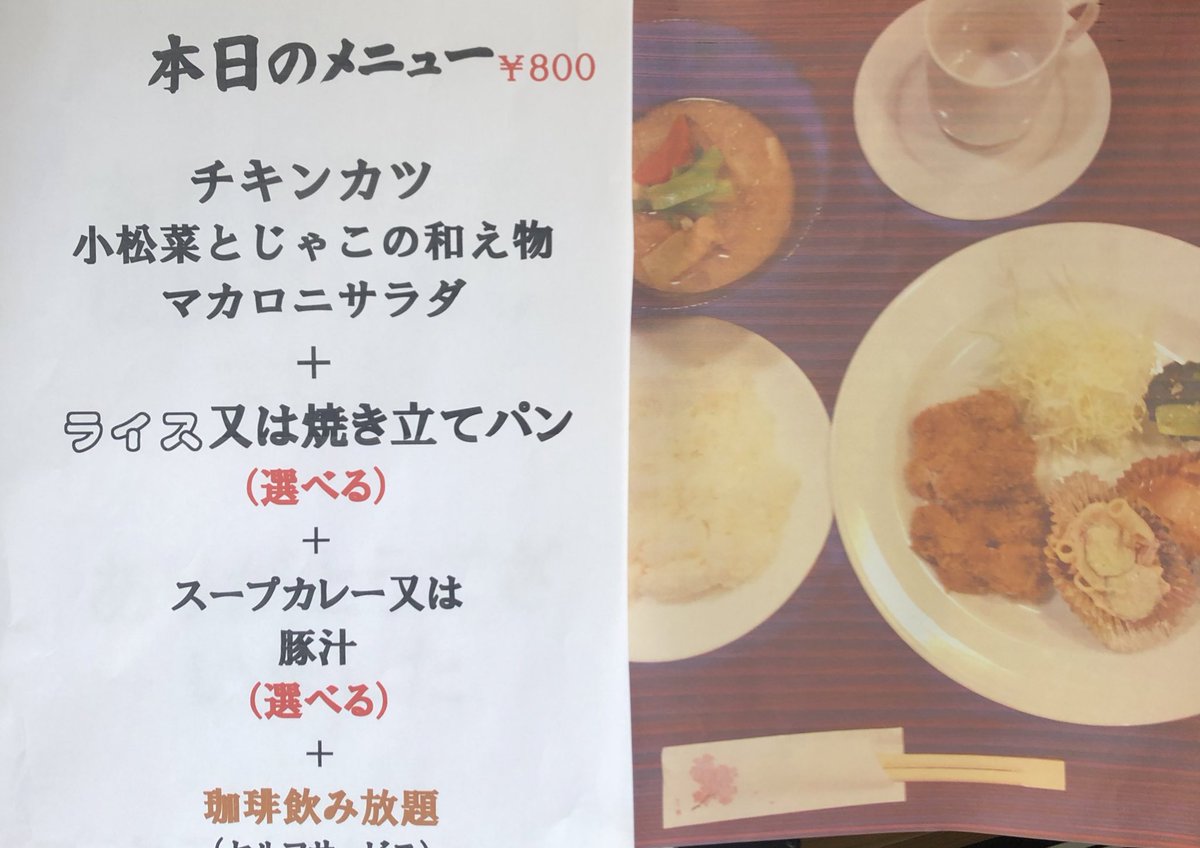 本日のメニュー ¥800
チキンカツ
小松菜とじゃこの和え物
マカロニサラダ
+
ライス又は焼き立てパン
(選べる)
+
スープカレー又は
豚汁
(選べる)
+
珈琲飲み放題
(セルフサービス)